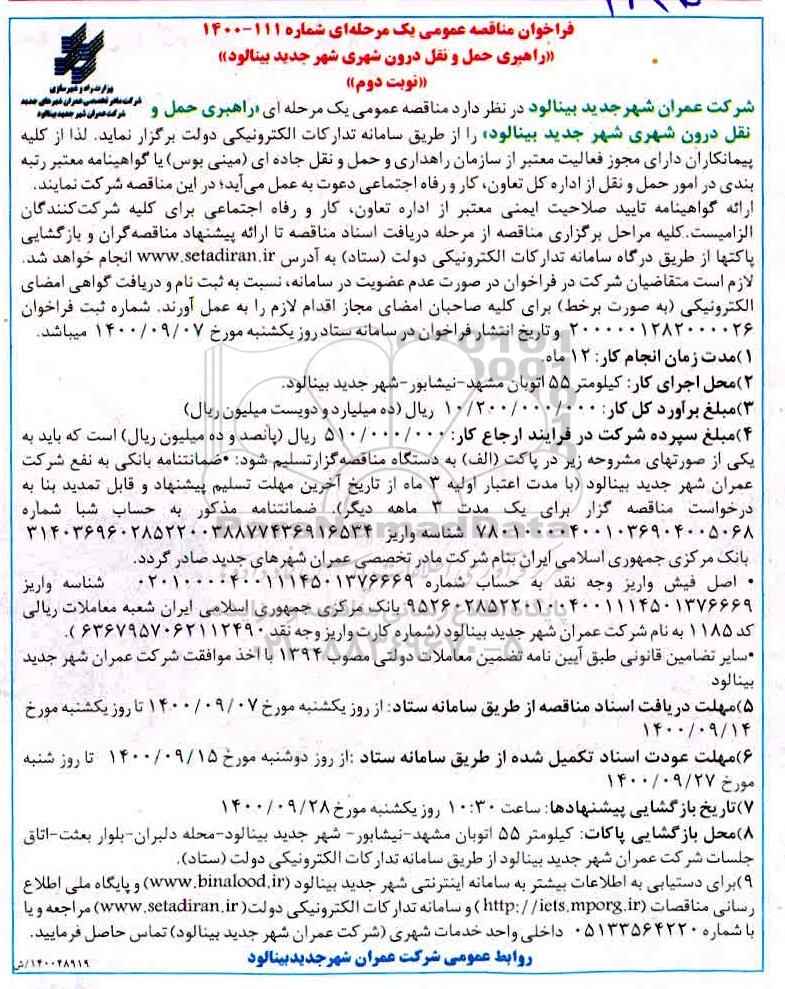 فراخوان مناقصه عمومی یک مرحله‌ای شماره ۱۱۱-۱۴۰۰
«راهبری حمل و نقل درون شهری شهر جدید بینالود»
«نوبت دوم»
وزارت راه و شهرسازی
شرکت مادر تخصصی عمران شهرهای جدید
شرکت عمران شهر جدید بینالود
شرکت عمران شهرجدید بینالود در نظر دارد مناقصه عمومی یک مرحله ای «راهبری حمل و
نقل درون شهری شهر جدید بینالود» را از طریق سامانه تدارکات الکترونیکی دولت برگزار نماید. لذا از کلیه
پیمانکاران دارای مجوز فعالیت معتبر از سازمان راهداری و حمل و نقل جاده ای (مینی بوس) یا گواهینامه معتبر رتبه
بندی در امور حمل و نقل از اداره کل تعاون، کار و رفاه اجتماعی دعوت به عمل می‌آید؛ در این مناقصه شرکت نمایند.
ارائه گواهینامه تایید صلاحیت ایمنی معتبر از اداره تعاون، کار و رفاه اجتماعی برای کلیه شرکت‌کنندگان
الزامیست.کلیه مراحل برگزاری مناقصه از مرحله دریافت اسناد مناقصه تا ارائه پیشنهاد مناقصه‌گران و بازگشایی
پاکتها از طریق درگاه سامانه تدارکات الکترونیکی دولت (ستاد) به آدرس www.setadiran.ir انجام خواهد شد.
لازم است متقاضیان شرکت در فراخوان در صورت عدم عضویت در سامانه، نسبت به ثبت نام و دریافت گواهی امضای
الکترونیکی (به صورت برخط) برای کلیه صاحبان امضای مجاز اقدام لازم را به عمل آورند. شماره ثبت فراخوان
۲۰۰۰۰۰۱۲۸۲۰۰۰۰۲۶ و تاریخ انتشار فراخوان در سامانه ستاد روز یکشنبه مورخ ۱۴۰۰/۰۹/۰۷ میباشد.
۱)مدت زمان انجام کار: ۱۲ ماه.
۲)محل اجرای کار: کیلومتر ۵۵ اتوبان مشهد-نیشابور-شهر جدید بینالود.
۳)مبلغ برآورد کل کار: ۱۰/۲۰۰/۰۰۰/۰۰۰ ریال (ده میلیارد و دویست میلیون ریال)
۴)مبلغ سپرده شرکت در فرایند ارجاع کار: ۵۱۰/۰۰۰/۰۰۰ ریال (پانصد و ده میلیون ریال) است که باید به
یکی از صورتهای مشروحه زیر در پاکت (الف) به دستگاه مناقصه‌گزار تسلیم شود: •ضمانتنامه بانکی به نفع شرکت
عمران شهر جدید بینالود (با مدت اعتبار اولیه ۳ ماه از تاریخ آخرین مهلت تسلیم پیشنهاد و قابل تمدید بنا به
درخواست مناقصه گزار برای یک مدت ۳ ماهه دیگر). ضمانتنامه مذکور به حساب شبا شماره
شناسه واریز
بانک مرکزی جمهوری اسلامی ایران بنام شرکت مادر تخصصی عمران شهرهای جدید صادر گردد.
• اصل فیش واریز وجه نقد به حساب شماره شناسه واریز
بانک مرکزی جمهوری اسلامی ایران شعبه معاملات ریالی
کد ۱۱۸۵ به نام شرکت عمران شهر جدید بینالود (شماره کارت واریز وجه نقد ۶۳۶۷۹۵۷۰۶۲۱۱۲۴۹۰ ).
•سایر تضامین قانونی طبق آیین نامه تضمین معاملات دولتی مصوب ۱۳۹۴ با اخذ موافقت شرکت عمران شهر جدید
بینالود
۵)مهلت دریافت اسناد مناقصه از طریق سامانه ستاد: از روز یکشنبه مورخ ۱۴۰۰/۰۹/۰۷ تا روز یکشنبه مورخ
۱۴۰۰/۰۹/۱۴
۶)مهلت عودت اسناد تکمیل شده از طریق سامانه ستاد :از روز دوشنبه مورخ ۱۴۰۰/۰۹/۱۵ تا روز شنبه
مورخ ۱۴۰۰/۰۹/۲۷
۷)تاریخ بازگشایی پیشنهادها: ساعت ۱۰:۳۰ روز یکشنبه مورخ ۱۴۰۰/۰۹/۲۸
۸)محل بازگشایی پاکات: کیلومتر ۵۵ اتوبان مشهد-نیشابور- شهر جدید بینالود-محله دلبران-بلوار بعثت-اتاق
جلسات شرکت عمران شهر جدید بینالود از طریق سامانه تدارکات الکترونیکی دولت (ستاد).
۹)برای دستیابی به اطلاعات بیشتر به سامانه اینترنتی شهر جدید بینالود (www.binalood.ir) و پایگاه ملی اطلاع
رسانی مناقصات (http://iets.mporg.ir ) و سامانه تدارکات الکترونیکی دولت( www.setadiran.ir) مراجعه و یا
با شماره ۰۵۱۳۳۵۶۴۲۲۰ داخلی واحد خدمات شهری (شرکت عمران شهر جدید بینالود) تماس حاصل فرمایید.
روابط عمومی شرکت عمران شهرجدیدبینالود
۱۴۰۰۴۸۹۱۹/ش